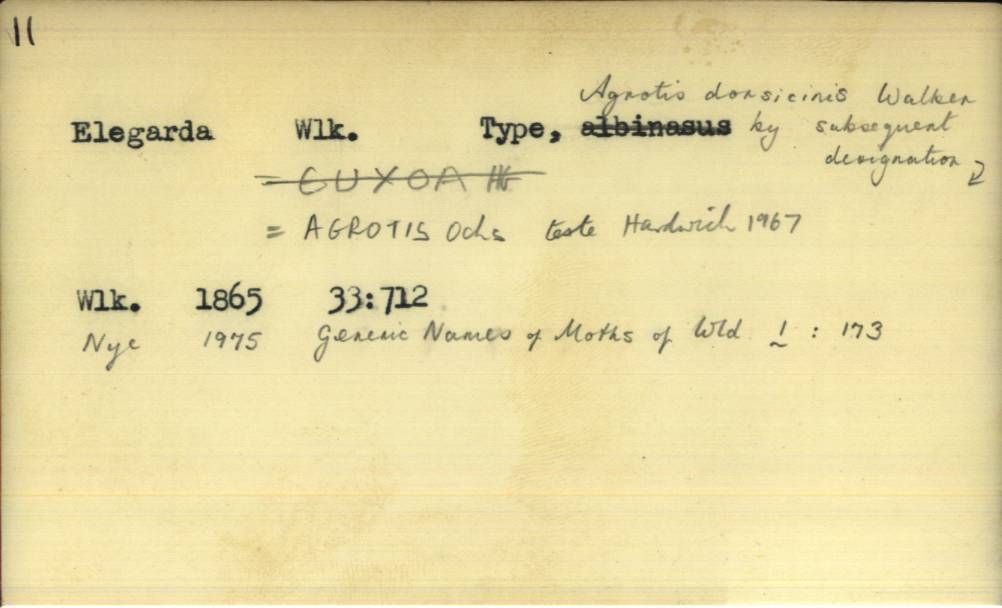 11
Agrotis dorsicinis Walker
Elegarda Wlk. Type, albinasus by subsequent
designation
= EUXOA
= AGROTIS Ochs teste Hardwick 1967
Wlk. 1865 33:712
Nye 1975 Generic Names of Moths of Wld 1 : 173